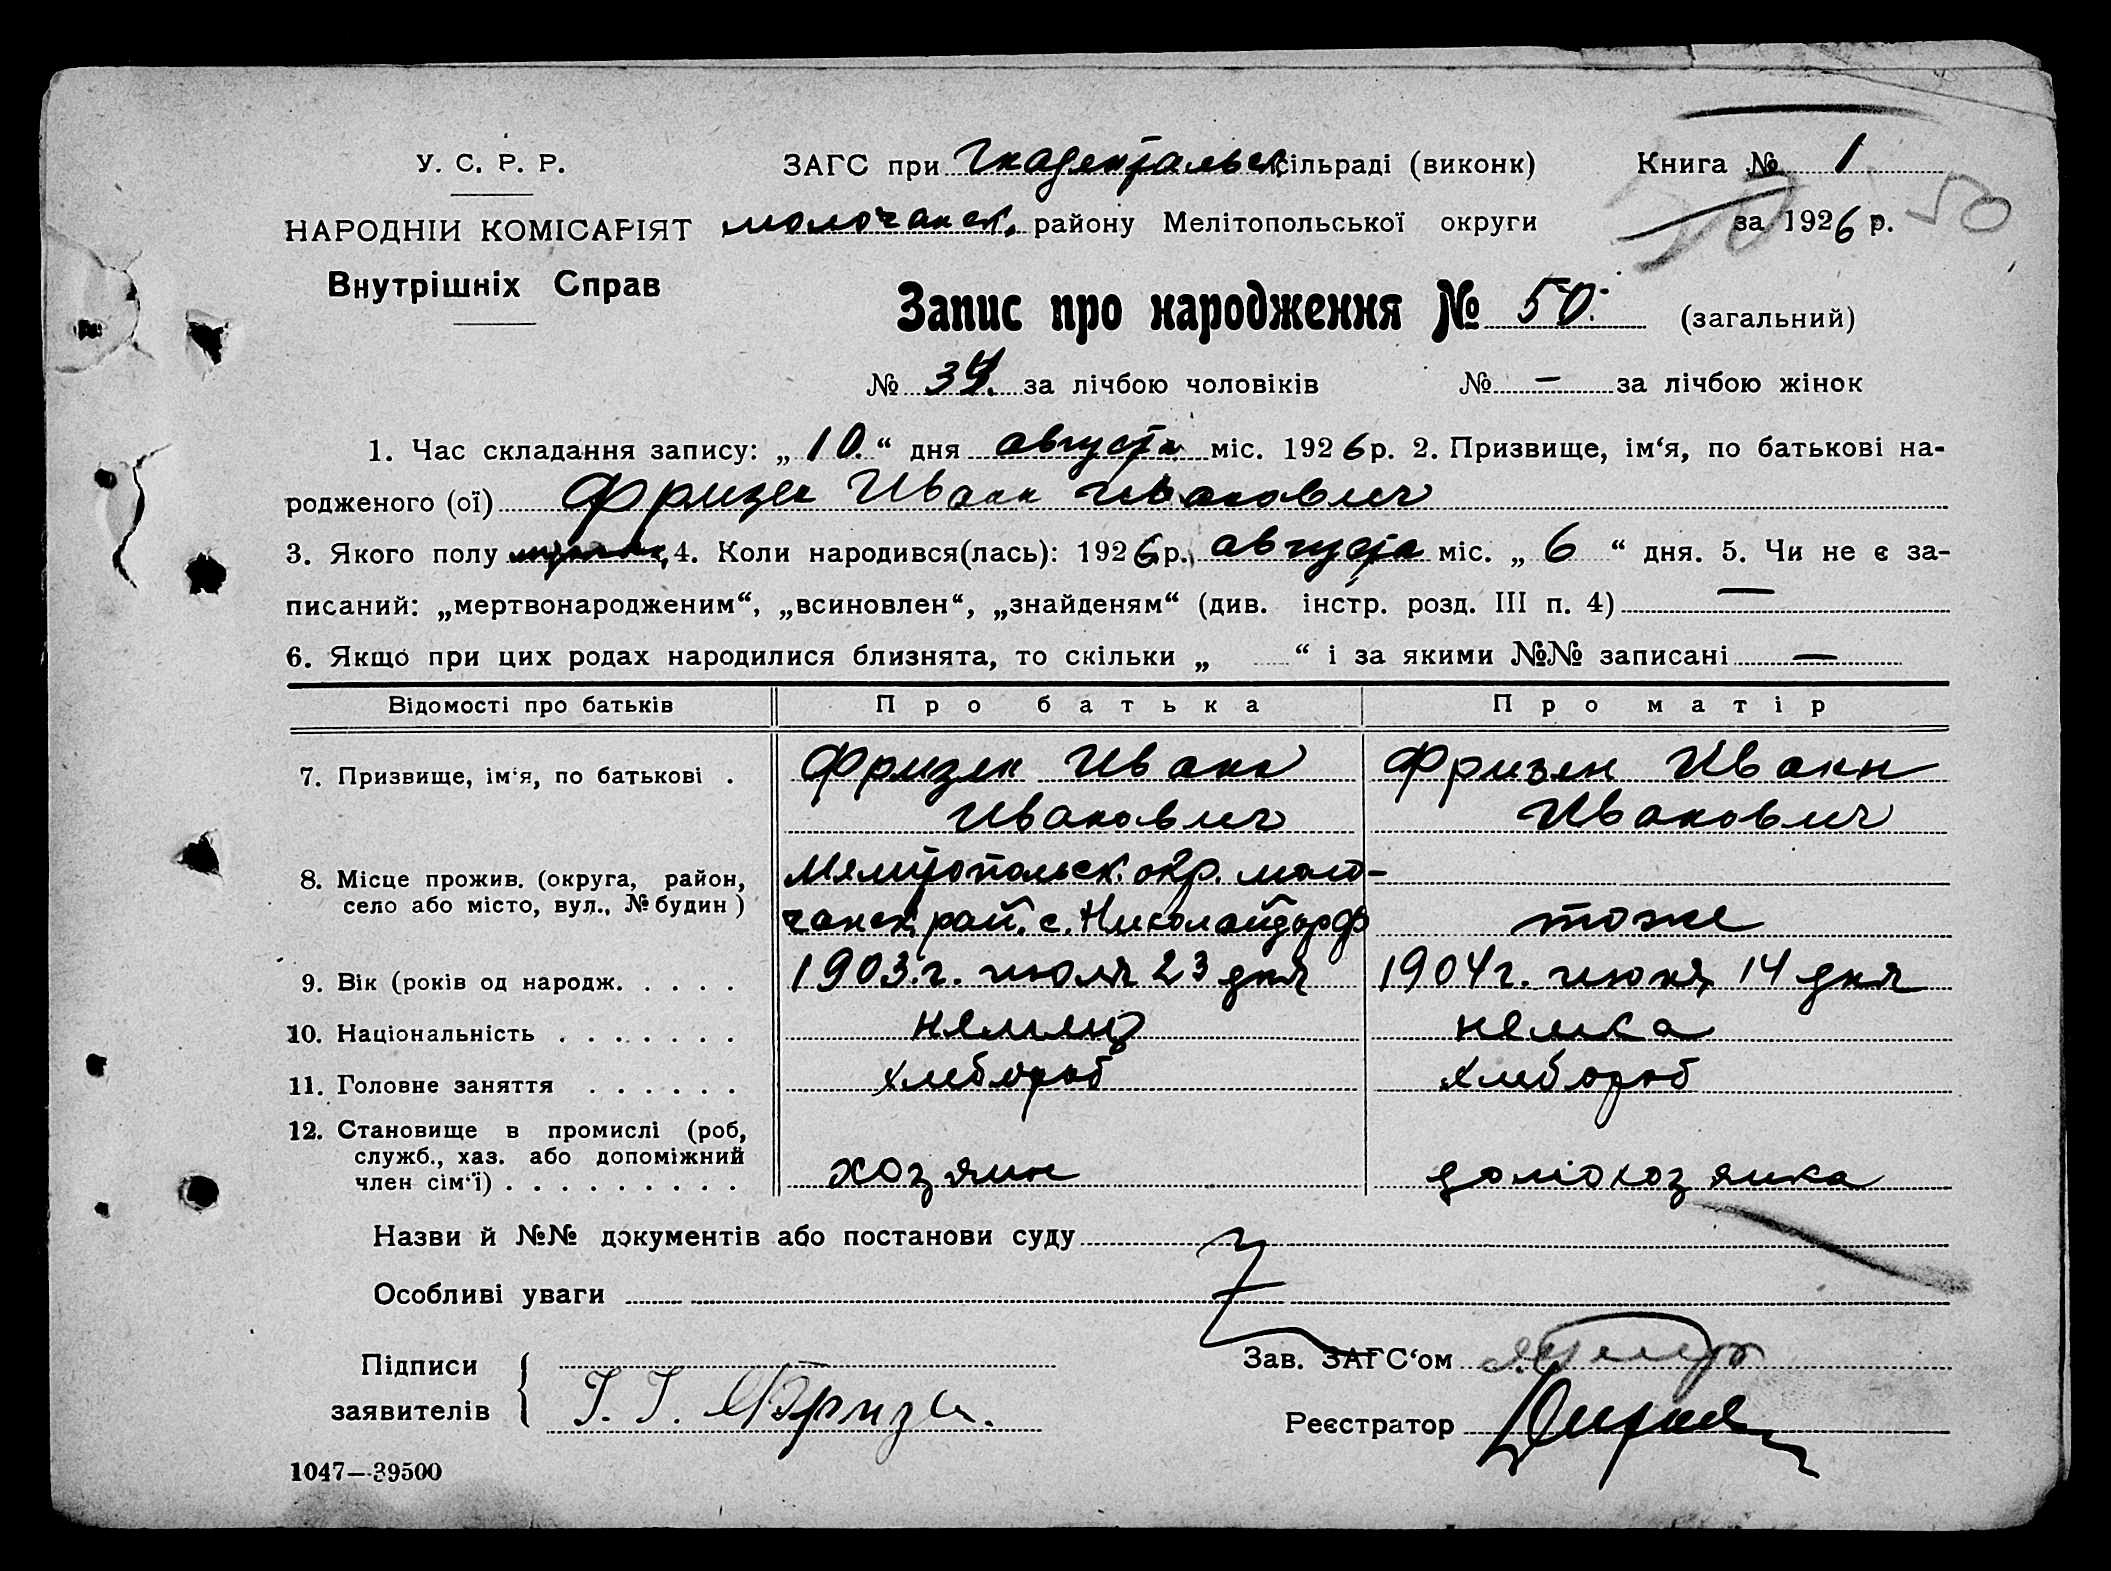 У. С. Р. Р.
НАРОДНІЙ КОМІСАРІЯТ
Внутрішніх Справ
ЗАГС при Гнадентальск. сільраді (виконк)
молочанск. району Мелітопольської округи
Книга № 1
за 1926 р. 50
Запис про народження № 50. (загальний)
№ 34. за лічбою чоловіків № — за лічбою жінок
1. Час складання запису: „10.“ дня августа міс. 1926 р. 2. Призвище, ім‘я, по батькові на-
родженого (ої) Фризен Иван Иванович
3. Якого полу мужск. 4. Коли народився(лась): 1926 р., августа міс. „ 6 “ дня. 5. Чи не є за-
писаний: „мертвонародженим“, „всиновлен“, „знайденям“ (див. інстр. розд. III п. 4) —
6. Якщо при цих родах народилися близнята, то скільки „ “ і за якими №№ записані —
Відомості про батьків Про батька Про матір
7. Призвище, ім‘я, по батькові . Фризен Иван Фризен Иван
Иванович Иванович
8. Місце прожив. (округа, район, Мелитопольск. окр. моло-
село або місто, вул., № будин) чанск. рай. с. Николайдорф тоже
9. Вік (років од народж. . . . . 1903.г. июля 23 дня 1904 г. июня 14 дня
10. Національність . . . . . . . немец немка
11. Головне заняття . . . . . . хлебороб хлебороб
12. Становище в промислі (роб,
служб., хаз. або допоміжний
член сім‘ї) . . . . . . . . . хозяин домохозяйка
Назви й №№ документів або постанови суду
Особливі уваги
Підписи
заявителів { I. I. Фризен.
Зав. ЗАГС‘ом
Реєстратор
1047—39500